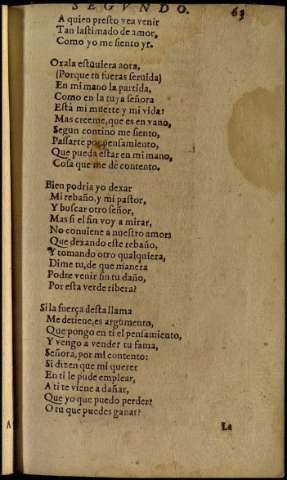 SEGVNDO. 63
A quien presto vea venir
Tan lastimado de amor,
Como yo me siento yr.
Oxala estuuiera aora,
(Porque tu fueras seruida)
En mi mano la partida,
Como en la tuya señora
Està mi muerte y mi vida:
Mas creeme, que es en vano,
Segun contino me siento,
Passarte por pensamiento,
Que pueda estar en mi mano,
Cosa que me dè contento.
Bien podria yo dexar
Mi rebaño, y mi pastor,
Y buscar otro señor,
Mas si el fin voy a mirar,
No conuiene a nuestro amor:
Que dexando este rebaño,
Y tomando otro qualquiera,
Dime tu, de que manera
Podre venir sin tu daño,
Por esta verde ribera?
Si la fuerça desta llama
Me detiene, es argumento,
Que pongo en ti el pensamiento,
Y vengo a vender tu fama,
Señora, por mi contento:
Si dizen que mi querer
En ti le pude emplear,
A ti te viene a dañar,
Que yo que puedo perder?
O tu que puedes ganar?
La
A